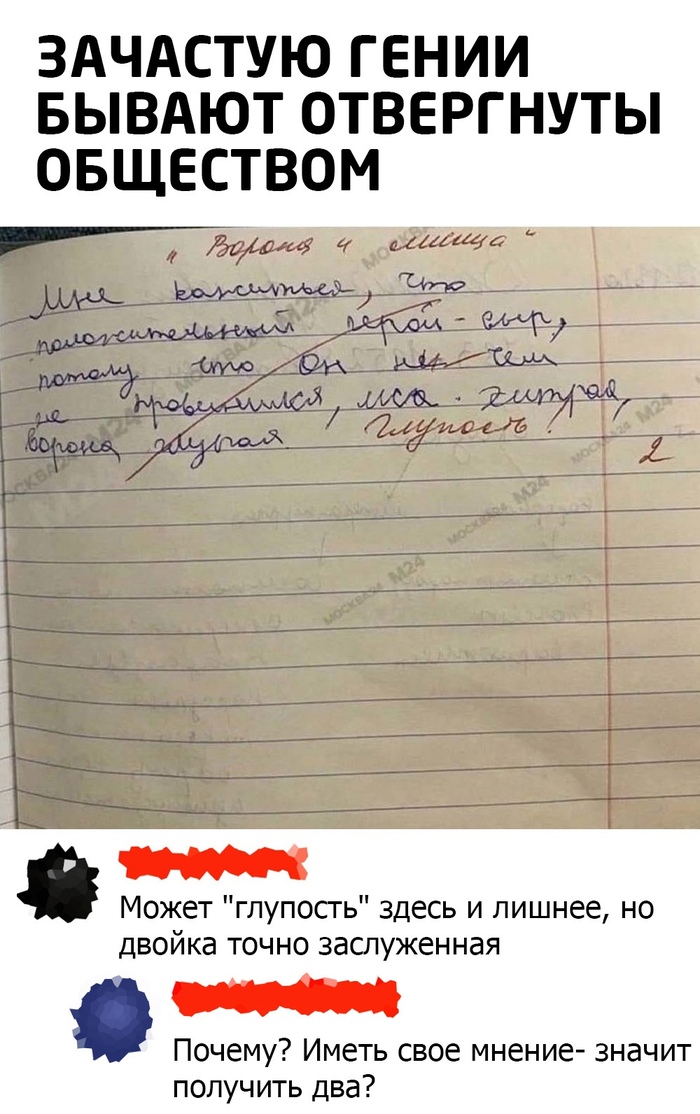 ЗАЧАСТУЮ ГЕНИИ
БЫВАЮТ ОТВЕРГНУТЫ
ОБЩЕСТВОМ
"Ворона и лисица"
Мне кажиться, что
положительный герой - сыр,
потому что он не чем
не провинился, лиса - хитрая,
ворона глупая. Глупость!
2
МОСКВА24 М24
Может "глупость" здесь и лишнее, но
двойка точно заслуженная
Почему? Иметь свое мнение- значит
получить два?